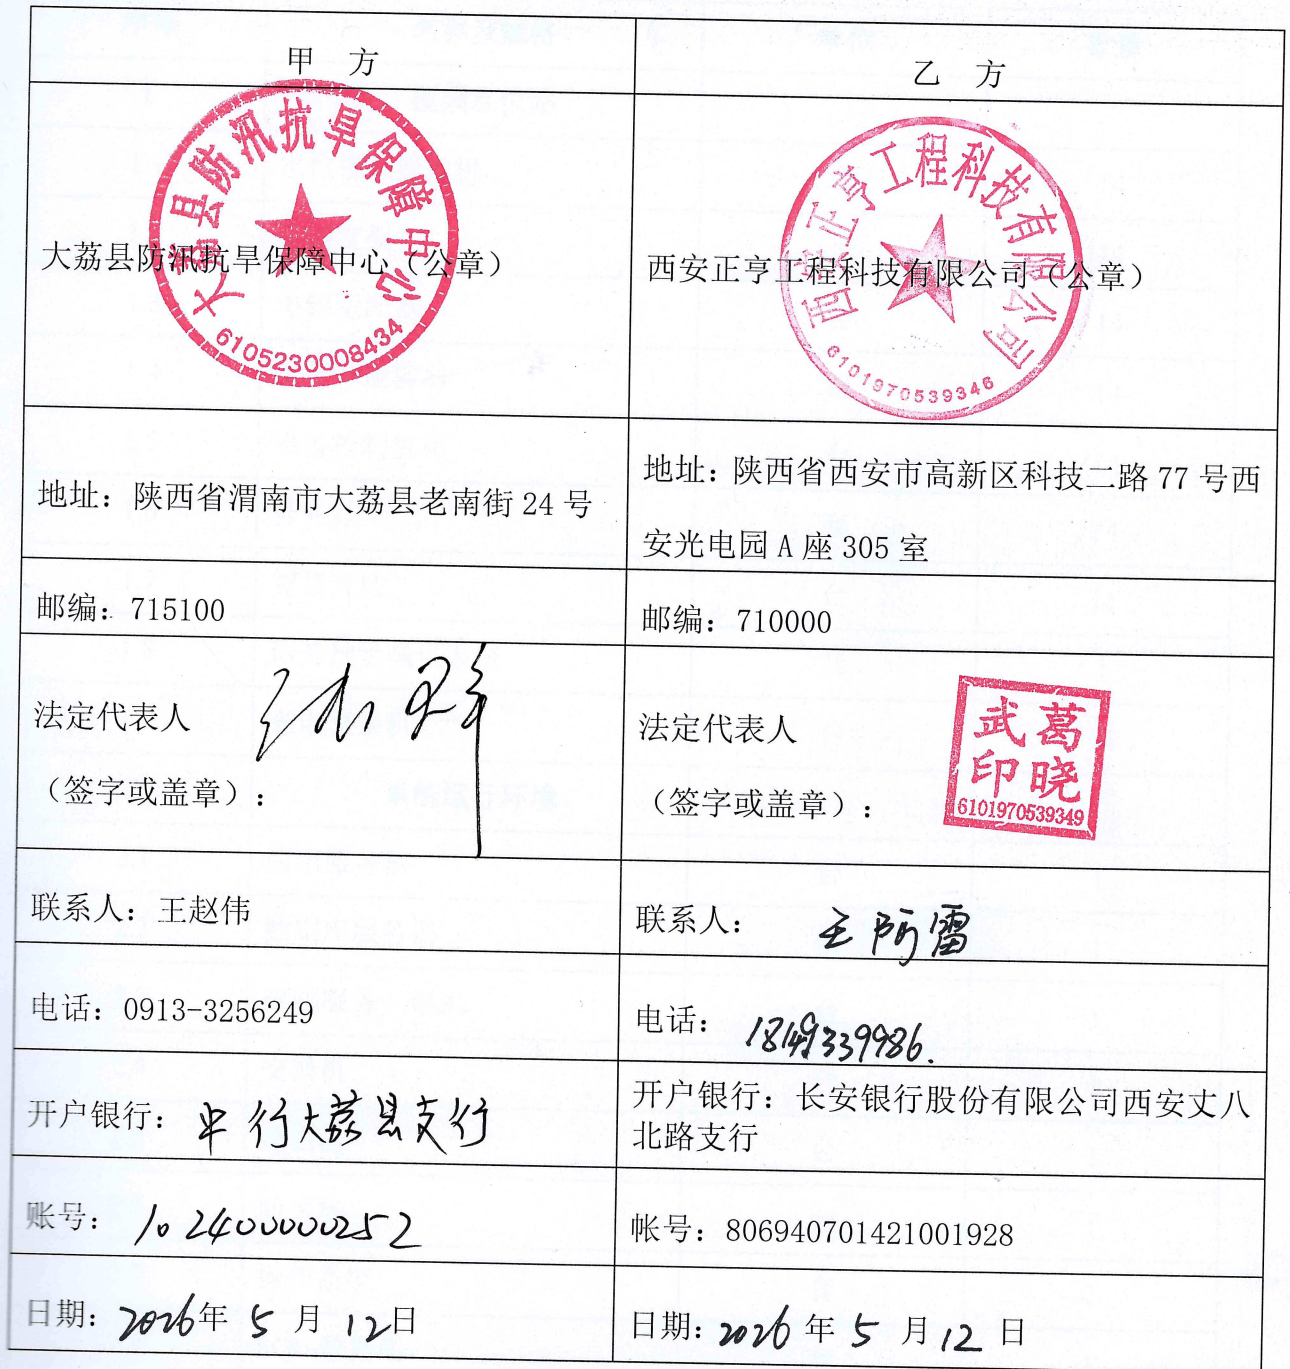 甲 方
乙 方
大荔县防汛抗旱保障中心（公章）
大荔县防汛抗旱保障中心
6105230008434
西安正亨工程科技有限公司（公章）
西安正亨工程科技有限公司
6101970539346
地址：陕西省渭南市大荔县老南街 24 号
地址：陕西省西安市高新区科技二路 77 号西
安光电园 A 座 305 室
邮编：715100
邮编：710000
法定代表人
（签字或盖章）：
法定代表人
（签字或盖章）：
葛晓武印
6101970539349
联系人：王赵伟
联系人：王阿雷
电话：0913-3256249
电话：
开户银行：中行大荔县支行
开户银行：长安银行股份有限公司西安丈八
北路支行
账号：102400000252
帐号：806940701421001928
日期：2026年 5 月 12日
日期：2026 年 5 月 12 日